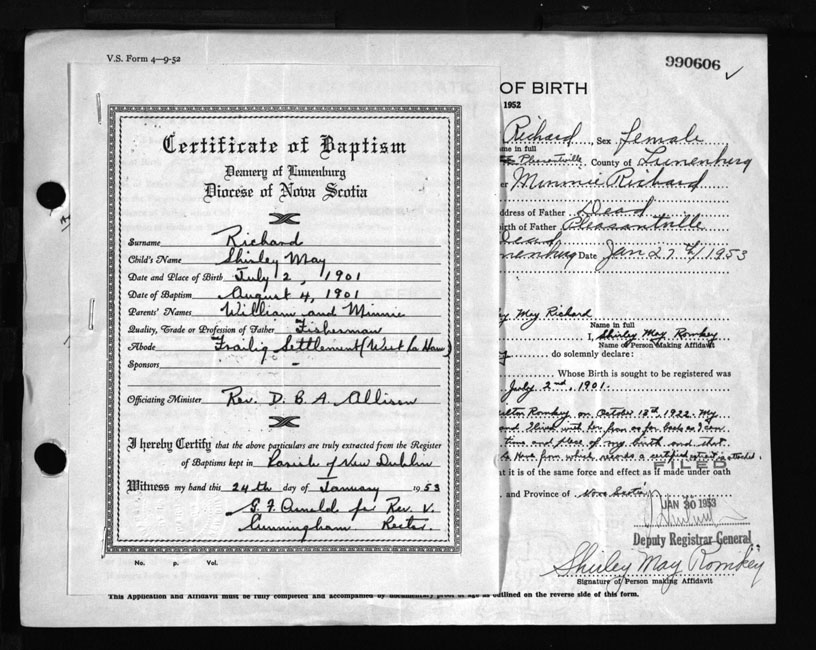 V.S. Form 4—9-52
990606
Certificate of Baptism
Deanery of Lunenburg
Diocese of Nova Scotia
Surname Richard
Child's Name Shirley May
Date and Place of Birth July 2, 1901
Date of Baptism August 4, 1901
Parents' Names William and Minnie
Quality, Trade or Profession of Father Fisherman
Abode Settlement (West La Have)
Sponsors -
Officiating Minister Rev. D. B. A. Allison
I hereby Certify that the above particulars are truly extracted from the Register
of Baptisms kept in Parish of New Dublin
Witness my hand this 24th day of January 1953
S. F. Arnold for Rev. V.
Cunningham Rector.
No. p. Vol.
OF BIRTH
1952
Richard, Sex Female
me in full
County of Lunenburg
Minnie Richard
ddress of Father Dead
irth of Father Pleasantville
Dead
nenburg Date Jan 27 1953
ey May Richard
Name in full
I, Shirley May Romkey
Name of Person Making Affidavit
do solemnly declare:
Whose Birth is sought to be registered was
July 2nd, 1901.
Romkey on October 18th, 1922. My
and I lived with her from as far back as I can
time and place of my birth and that
from which records a certified extract is attached.
FILED
at it is of the same force and effect as if made under oath
and Province of Nova Scotia
JAN 30 1953
Deputy Registrar-General
Shirley May Romkey
Signature of Person making Affidavit
This Application and Affidavit must be fully completed and accompanied by documentary proof of age as outlined on the reverse side of this form.